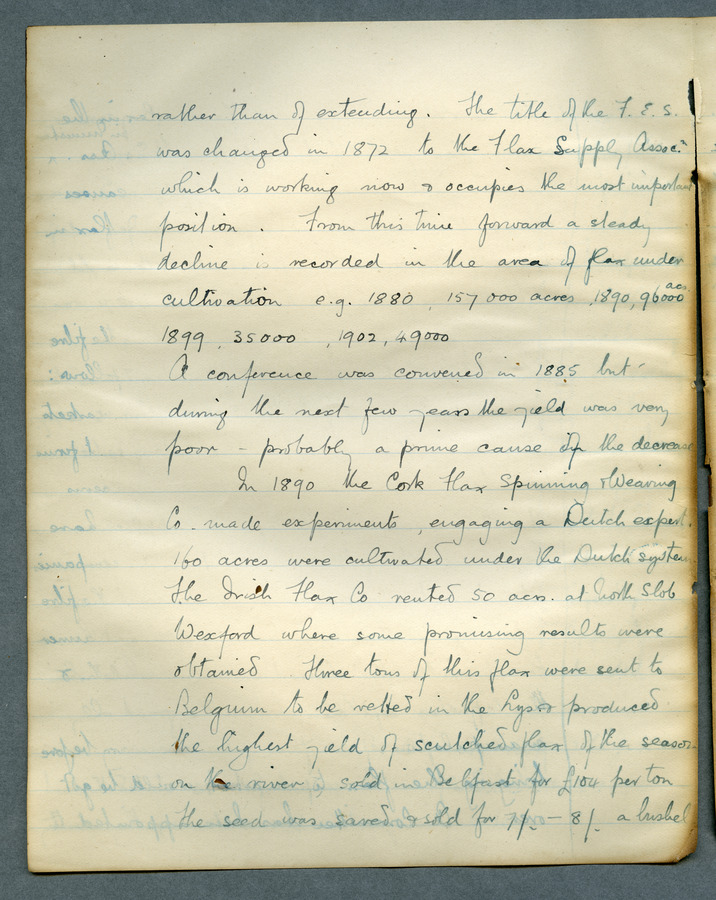 rather than of extending. The title of the F.E.S.
was changed in 1872 to the Flax Supply Assoc.n
which is working now & occupies the most important
position. From this time forward a steady
decline is recorded in the area of flax under
cultivation e.g. 1880, 157 000 acres, 1890, 96000 acs.
1899, 35000, 1902, 49000
A conference was convened in 1885 but
during the next few years the yield was very
poor - probably a prime cause of the decrease
In 1890 the Cork Flax Spinning & Weaving
Co. made experiments, engaging a Dutch expert.
160 acres were cultivated under the Dutch system
The Irish Flax Co rented 50 acrs. at North Slob
Wexford where some promising results were
obtained Three tons of this flax were sent to
Belgium to be retted in the Lys & produced
the highest yield of scutched flax of the season
on the river, sold in Belfast for £104 per ton
the seed was saved & sold for 7/- - 8/- a bushel